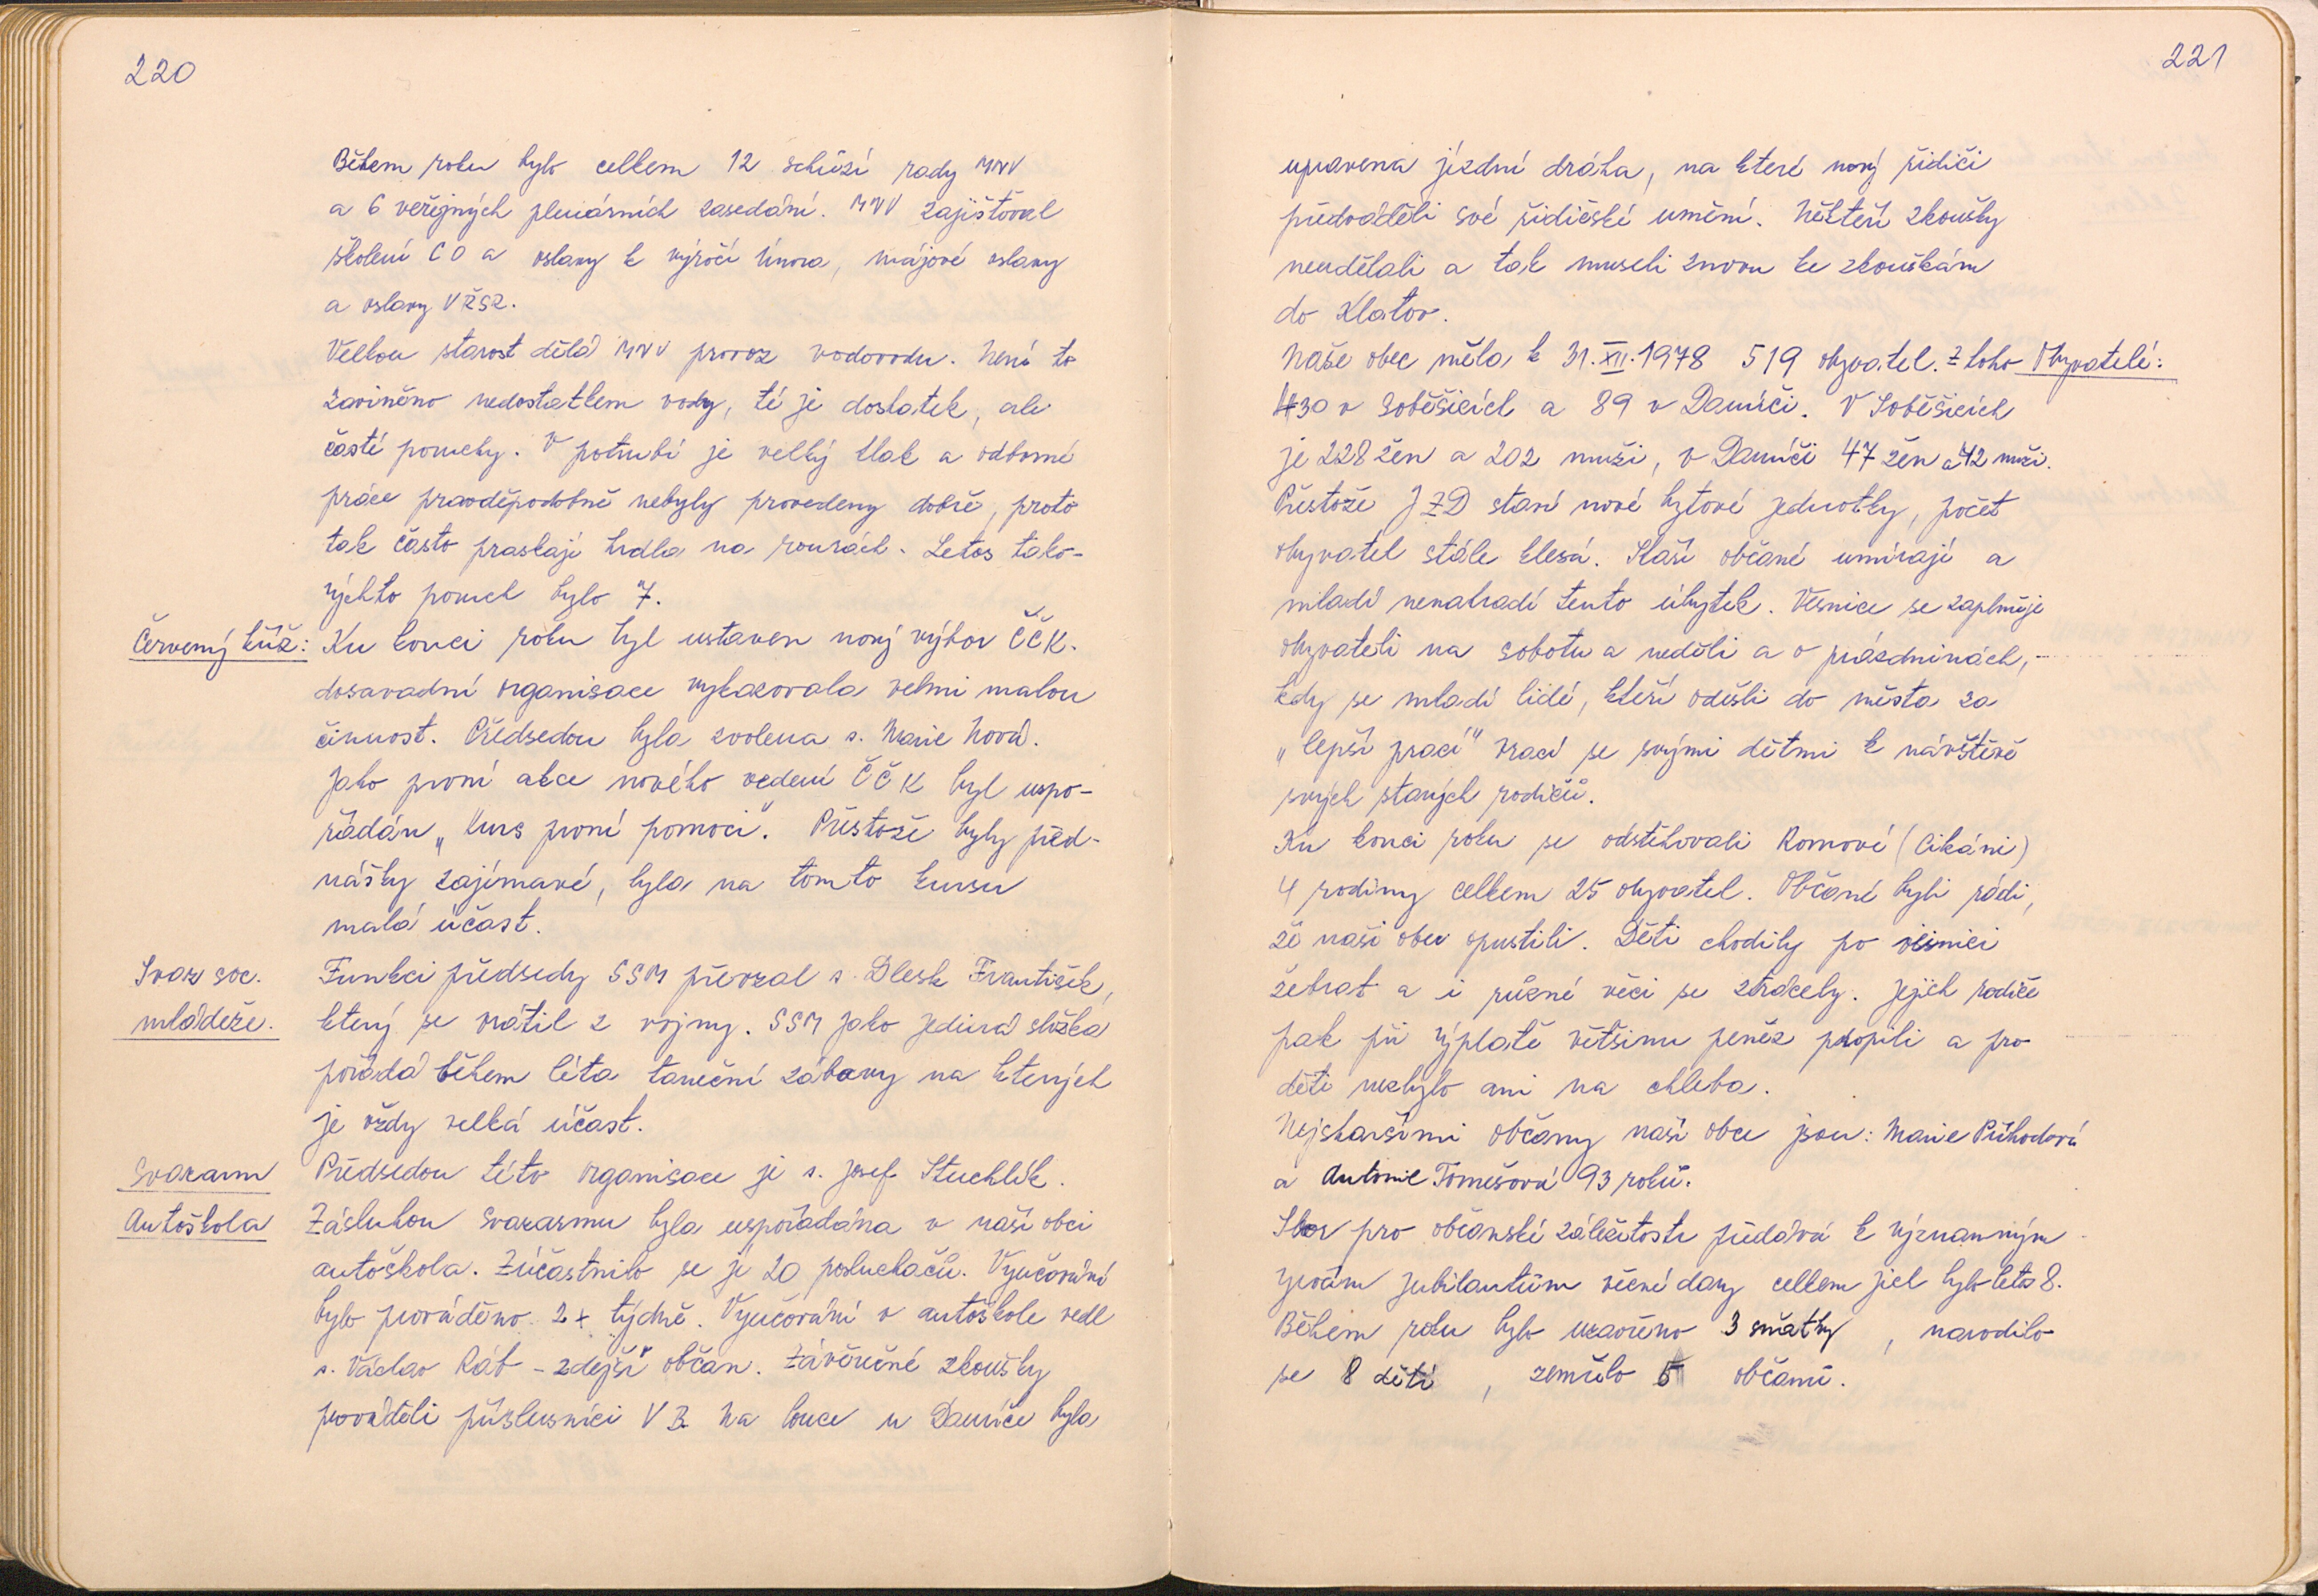 220
Během roku bylo celkem 12 schůzí rady MNV
a 6 veřejných plenárních zasedání. MNV zajišťoval
školení CO a oslavy k výročí Února, májové oslavy
a oslavy VŘSR.
Velkou starost dělá MNV provoz vodovodu. Není to
zaviněno nedostatkem vody, té je dostatek, ale
časté poruchy. V potrubí je velký tlak a odborné
práce pravděpodobně nebyly provedeny dobře, proto
tak často praskají hrdla na rourách. Letos tako-
výchto poruch bylo 7.
Červený kříž: Ku konci roku byl ustaven nový výbor ČČK.
dosavadní organisace vykazovala velmi malou
činnost. Předsedou byla zvolena s. Marie Nová.
Jako první akce nového vedení ČČK byl uspo-
řádán „Kurs první pomoci". Přestože byly před-
nášky zajímavé, byla na tomto kursu
malá účast.
Svaz soc. Funkci předsedy SSM převzal s. Dlesk František,
mládeže. který se vrátil z vojny. SSM jako jediná složka
pořádá během léta taneční zábavy na kterých
je vždy velká účast.
Svazarm Předsedou této organisace je s. Josef Stuchlík.
Autoškola Zásluhou Svazarmu byla uspořádána v naší obci
autoškola. Zúčastnilo se jí 20 posluchačů. Vyučování
bylo prováděno 2x týdně. Vyučování v autoškole vedl
s. Václav Ráb - zdejší občan. Závěrečné zkoušky
prováděli příslusníci VB. Na louce u Damíče byla
221
upravena jízdní dráha, na které nový řidiči
předváděli své řidičské umění. Někteří zkoušky
neudělali a tak museli znovu ke zkouškám
do Klatov.
Naše obec měla k 31.XII.1978 519 obyvatel. Z toho Obyvatelé:
430 v Soběšicích a 89 v Damíči. V Soběšicích
je 228 žen a 202 muži, v Damíči 47 žen a 42 muži.
Přestože JZD staví nové bytové jednotky, počet
obyvatel stále klesá. Staří občané umírají a
mladí nenahradí tento úbytek. Vesnice se zaplňuje
obyvateli na sobotu a neděli a o prázdninách,
kdy se mladí lidé, kteří odešli do města za
„lepší prací" vrací se svými dětmi k návštěvě
svých starých rodičů.
Ku konci roku se odstěhovali Romové (Cikáni)
4 rodiny celkem 25 obyvatel. Občané byli rádi,
že naši obec opustili. Děti chodily po vesnici
žebrat a i různé věci se ztrácely. Jejich rodiče
pak při výplatě většinu peněz propili a pro
děti nezbylo ani na chleba.
Nejstaršími občany naší obce jsou: Marie Příhodová
a Antonie Tomešová 93 roků.
Sbor pro občanské záležitosti předává k významným
jubilantům věcné dary celkem jich bylo letos 8.
Během roku bylo uzavřeno 3 sňatky, narodilo
se 8 dětí, zemřelo 5 občanů.